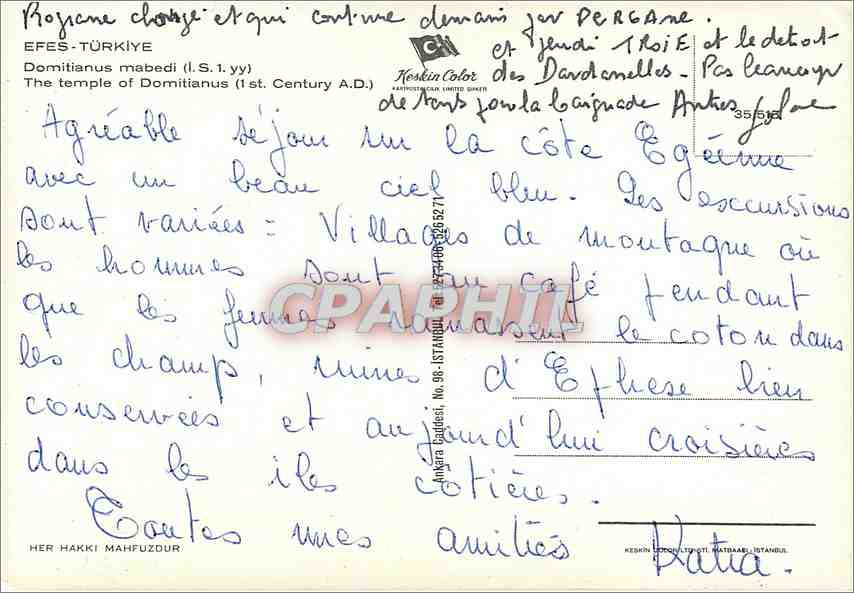 Programe chargé et qui continue demain par PERGAME.
et jeudi TROIE et le détroit
des Dardanelles - Pas beaucoup
de temps pour la baignade
EFES-TÜRKİYE
Domitianus mabedi (I.S. 1. yy)
The temple of Domitianus (1 st. Century A.D.)
Keskin Color
KARTPOSTALCILIK LIMITED ŞİRKETİ
35/515
Agréable séjour sur la côte Egéenne
avec un beau ciel bleu. Les excursions
sont variées = Villages de montagne où
les hommes sont au café pendant
que les femmes ramassent le coton dans
les champ, ruines d'Ephese bien
conservées et aujourd'hui croisières
dans les iles côtières.
Toutes mes amitiés Katia.
Ankara Caddesi, No. 98 - İSTANBUL Tel: 5273406 5265271
CPAPHIL
HER HAKKI MAHFUZDUR
KESKİN COLOR LTD. ŞTİ. MATBAASI - İSTANBUL